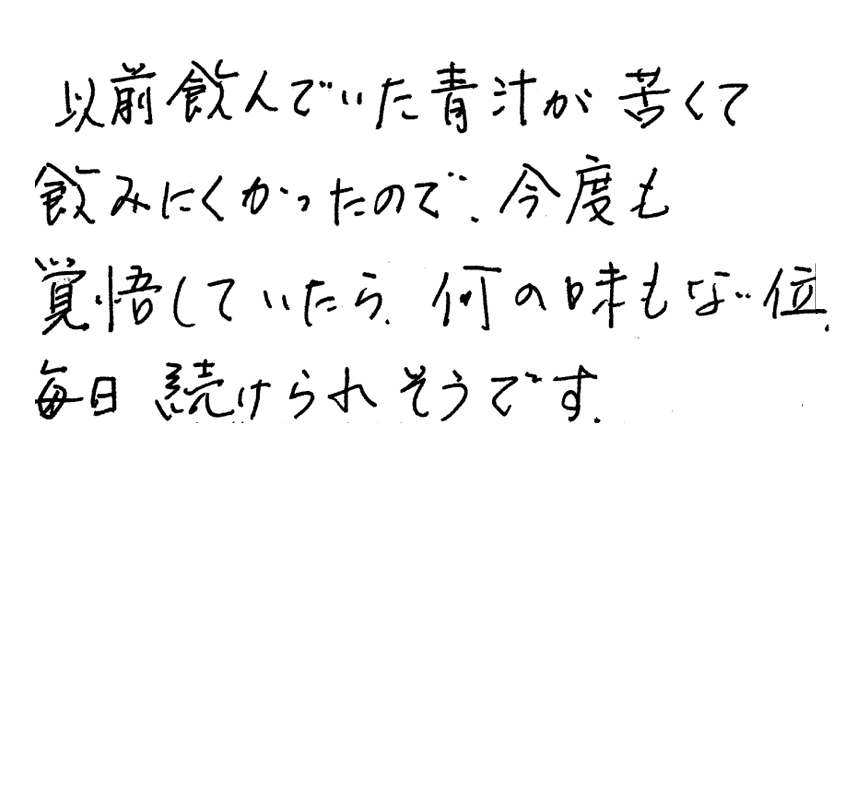 以前飲んでいた青汁が苦くて
飲みにくかったので、今度も
覚悟していたら、何の味もない位、
毎日続けられそうです。